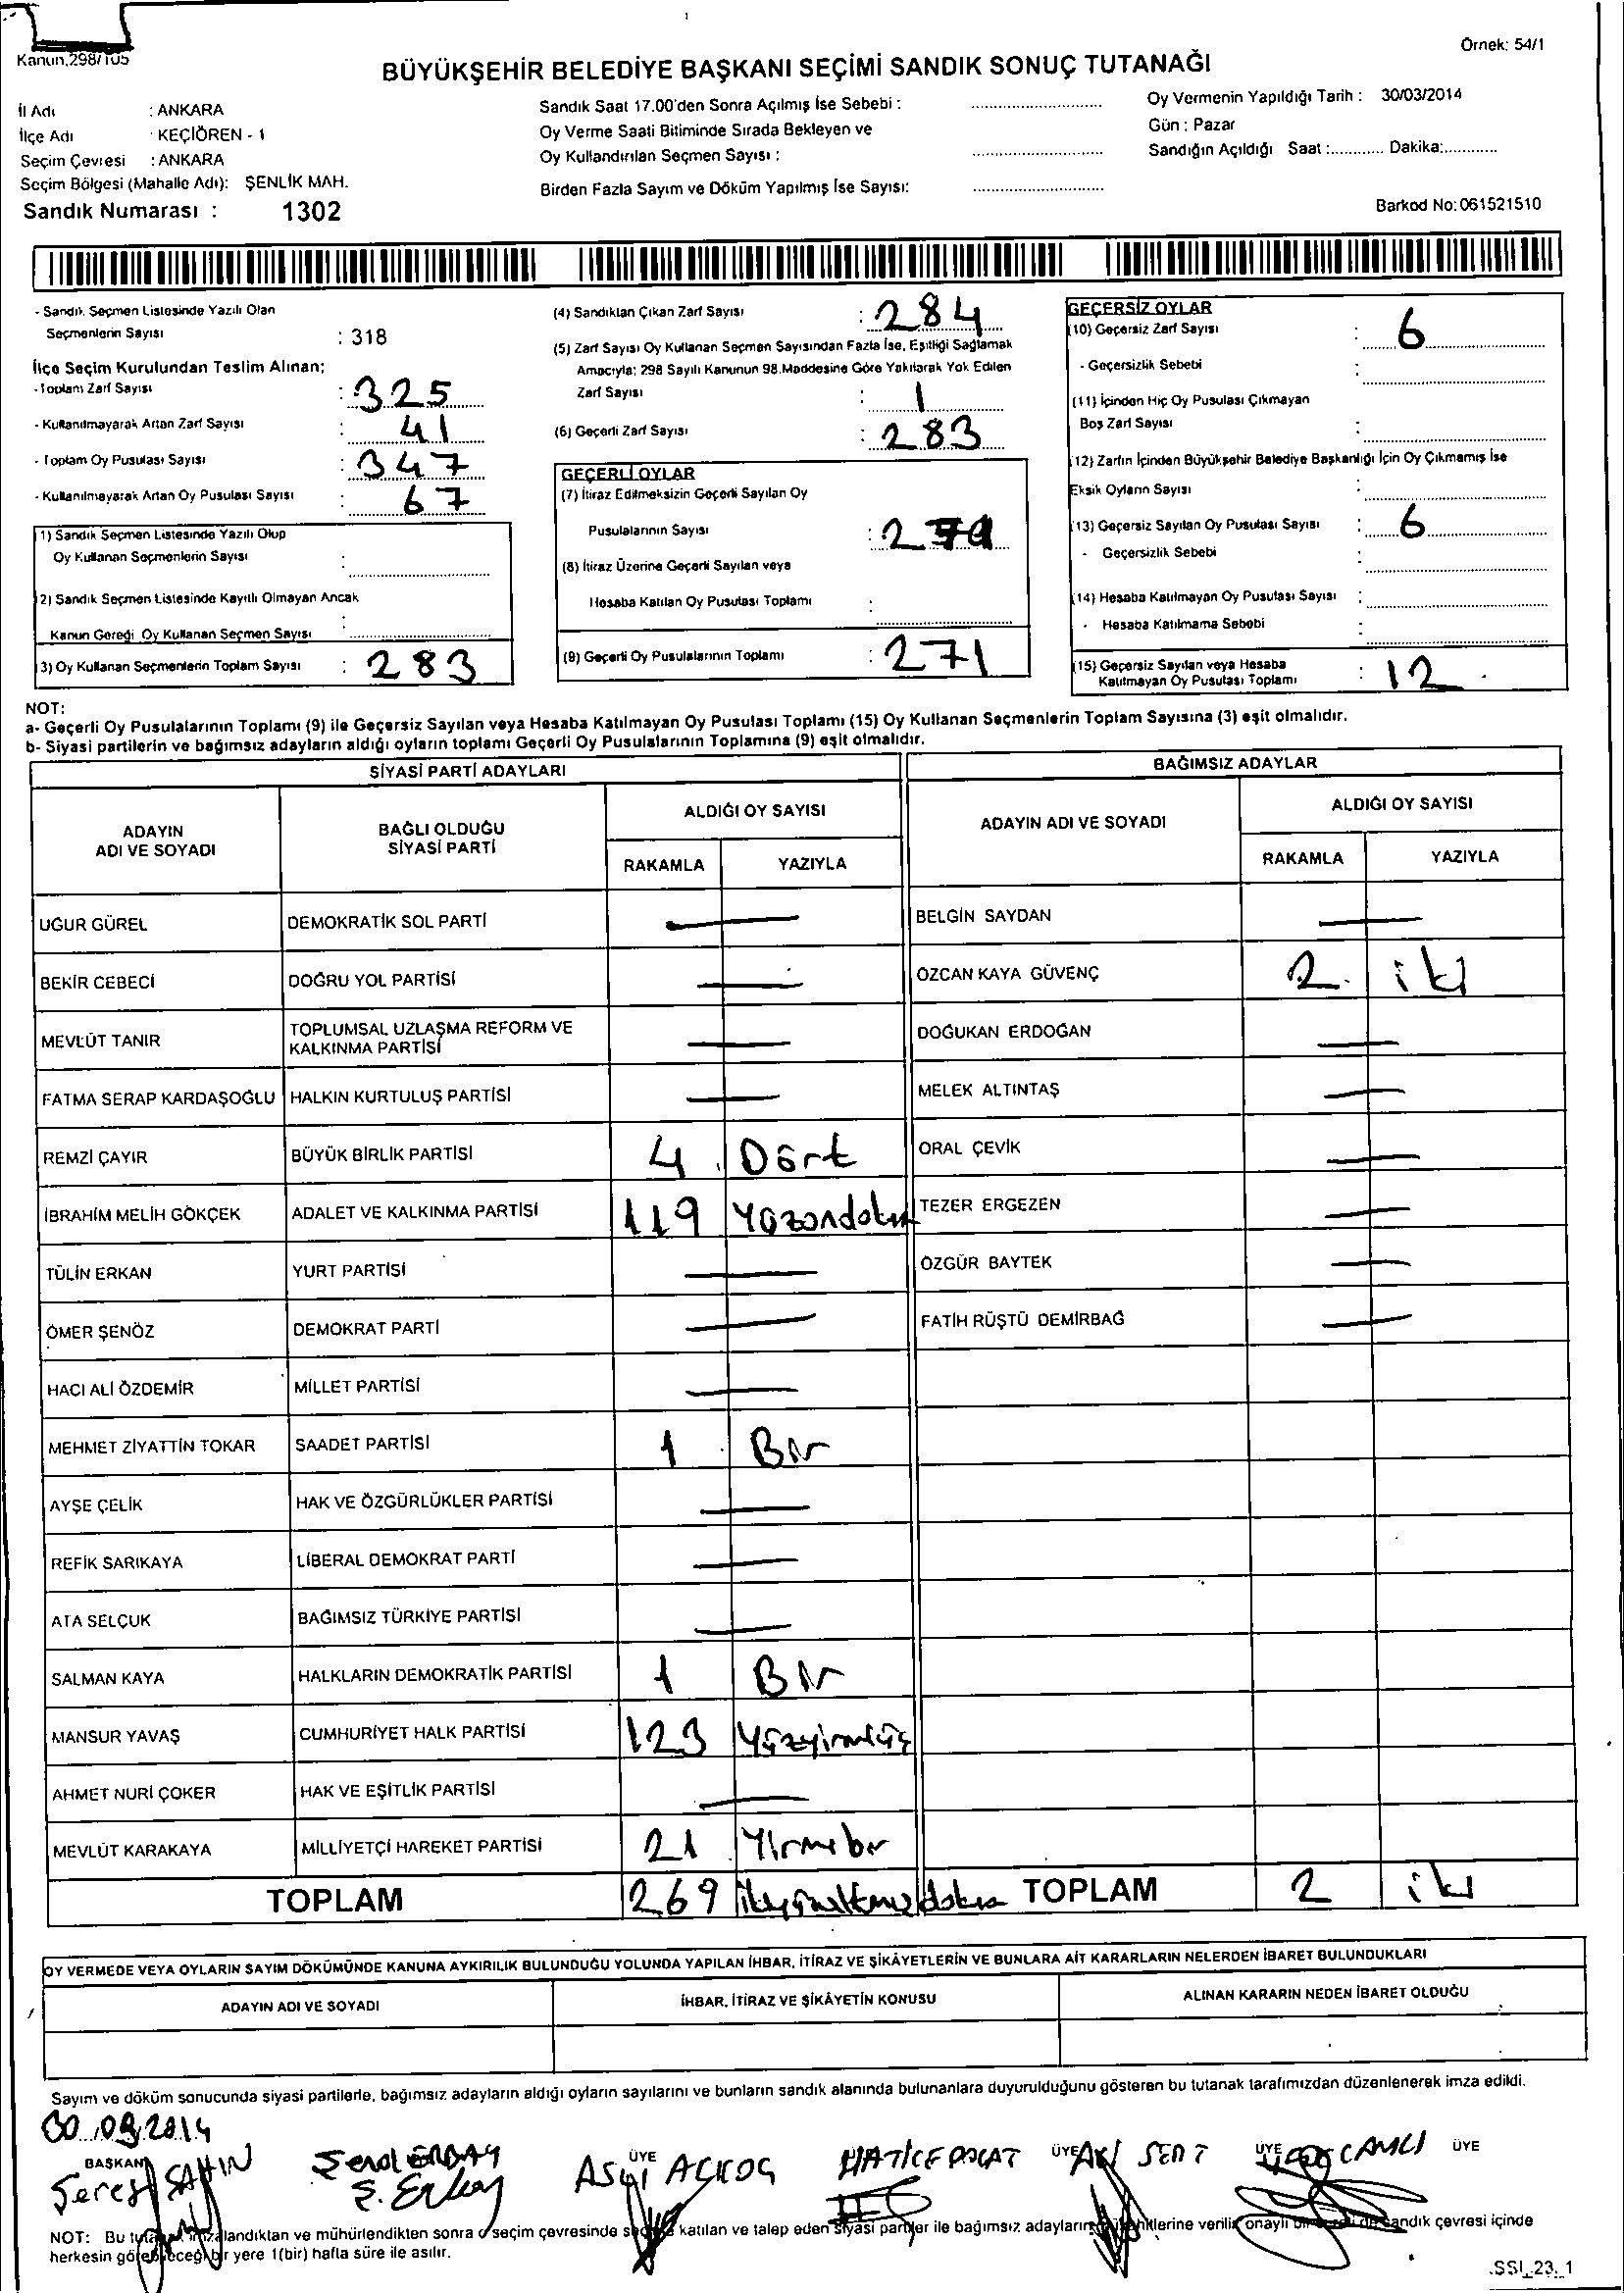 Kanun,298/105
Örnek: 54/1
BÜYÜKŞEHİR BELEDİYE BAŞKANI SEÇİMİ SANDIK SONUÇ TUTANAĞI
İl Adı : ANKARA
İlçe Adı : KEÇİÖREN - 1
Seçim Çevresi : ANKARA
Seçim Bölgesi (Mahalle Adı): ŞENLİK MAH.
Sandık Numarası : 1302
Sandık Saat 17.00'den Sonra Açılmış İse Sebebi :
Oy Verme Saati Bitiminde Sırada Bekleyen ve
Oy Kullandırılan Seçmen Sayısı :
Birden Fazla Sayım ve Döküm Yapılmış İse Sayısı:
Oy Vermenin Yapıldığı Tarih : 30/03/2014
Gün : Pazar
Sandığın Açıldığı Saat :............ Dakika:............
Barkod No:061521510
- Sandık Seçmen Listesinde Yazılı Olan
Seçmenlerin Sayısı : 318
İlçe Seçim Kurulundan Teslim Alınan;
- Toplam Zarf Sayısı : 325
- Kullanılmayarak Artan Zarf Sayısı : 41
- Toplam Oy Pusulası Sayısı : 347
- Kullanılmayarak Artan Oy Pusulası Sayısı : 67
1) Sandık Seçmen Listesinde Yazılı Olup
Oy Kullanan Seçmenlerin Sayısı :
2) Sandık Seçmen Listesinde Kayıtlı Olmayan Ancak
Kanun Gereği Oy Kullanan Seçmen Sayısı :
3) Oy Kullanan Seçmenlerin Toplam Sayısı : 283
(4) Sandıktan Çıkan Zarf Sayısı : 284
(5) Zarf Sayısı Oy Kullanan Seçmen Sayısından Fazla İse, Eşitliği Sağlamak
Amacıyla; 298 Sayılı Kanunun 98.Maddesine Göre Yakılarak Yok Edilen
Zarf Sayısı : 1
(6) Geçerli Zarf Sayısı : 283
GEÇERLİ OYLAR
(7) İtiraz Edilmeksizin Geçerli Sayılan Oy
Pusulalarının Sayısı :
(8) İtiraz Üzerine Geçerli Sayılan veya
Hesaba Katılan Oy Pusulası Toplamı :
(9) Geçerli Oy Pusulalarının Toplamı : 271
GEÇERSİZ OYLAR
(10) Geçersiz Zarf Sayısı : 6
- Geçersizlik Sebebi :
(11) İçinden Hiç Oy Pusulası Çıkmayan
Boş Zarf Sayısı :
(12) Zarfın İçinden Büyükşehir Belediye Başkanlığı İçin Oy Çıkmamış İse
Eksik Oyların Sayısı :
(13) Geçersiz Sayılan Oy Pusulası Sayısı : 6
- Geçersizlik Sebebi :
(14) Hesaba Katılmayan Oy Pusulası Sayısı :
- Hesaba Katılmama Sebebi :
(15) Geçersiz Sayılan veya Hesaba
Katılmayan Oy Pusulası Toplamı : 12
NOT:
a- Geçerli Oy Pusulalarının Toplamı (9) ile Geçersiz Sayılan veya Hesaba Katılmayan Oy Pusulası Toplamı (15) Oy Kullanan Seçmenlerin Toplam Sayısına (3) eşit olmalıdır.
b- Siyasi partilerin ve bağımsız adayların aldığı oyların toplamı Geçerli Oy Pusulalarının Toplamına (9) eşit olmalıdır.
SİYASİ PARTİ ADAYLARI
ADAYIN
ADI VE SOYADI
BAĞLI OLDUĞU
SİYASİ PARTİ
ALDIĞI OY SAYISI
RAKAMLA YAZIYLA
UĞUR GÜREL DEMOKRATİK SOL PARTİ —
BEKİR CEBECİ DOĞRU YOL PARTİSİ —
MEVLÜT TANIR TOPLUMSAL UZLAŞMA REFORM VE
KALKINMA PARTİSİ —
FATMA SERAP KARDAŞOĞLU HALKIN KURTULUŞ PARTİSİ —
REMZİ ÇAYIR BÜYÜK BİRLİK PARTİSİ 4 Dört
İBRAHİM MELİH GÖKÇEK ADALET VE KALKINMA PARTİSİ 119
TÜLİN ERKAN YURT PARTİSİ —
ÖMER ŞENÖZ DEMOKRAT PARTİ —
HACI ALİ ÖZDEMİR MİLLET PARTİSİ —
MEHMET ZİYATTİN TOKAR SAADET PARTİSİ 1 Bir
AYŞE ÇELİK HAK VE ÖZGÜRLÜKLER PARTİSİ —
REFİK SARIKAYA LİBERAL DEMOKRAT PARTİ —
ATA SELÇUK BAĞIMSIZ TÜRKİYE PARTİSİ —
SALMAN KAYA HALKLARIN DEMOKRATİK PARTİSİ 1 Bir
MANSUR YAVAŞ CUMHURİYET HALK PARTİSİ 123 Yüzyirmiüç
AHMET NURİ ÇOKER HAK VE EŞİTLİK PARTİSİ —
MEVLÜT KARAKAYA MİLLİYETÇİ HAREKET PARTİSİ 21 Yirmibir
TOPLAM 269
BAĞIMSIZ ADAYLAR
ADAYIN ADI VE SOYADI
ALDIĞI OY SAYISI
RAKAMLA YAZIYLA
BELGİN SAYDAN —
ÖZCAN KAYA GÜVENÇ 2 iki
DOĞUKAN ERDOĞAN —
MELEK ALTINTAŞ —
ORAL ÇEVİK —
TEZER ERGEZEN —
ÖZGÜR BAYTEK —
FATİH RÜŞTÜ DEMİRBAĞ —
TOPLAM 2 iki
OY VERMEDE VEYA OYLARIN SAYIM DÖKÜMÜNDE KANUNA AYKIRILIK BULUNDUĞU YOLUNDA YAPILAN İHBAR, İTİRAZ VE ŞİKÂYETLERİN VE BUNLARA AİT KARARLARIN NELERDEN İBARET BULUNDUKLARI
ADAYIN ADI VE SOYADI
İHBAR, İTİRAZ VE ŞİKÂYETİN KONUSU
ALINAN KARARIN NEDEN İBARET OLDUĞU
Sayım ve döküm sonucunda siyasi partilerle, bağımsız adayların aldığı oyların sayılarını ve bunların sandık alanında bulunanlara duyurulduğunu gösteren bu tutanak tarafımızdan düzenlenerek imza edildi.
BAŞKAN ÜYE ÜYE ÜYE ÜYE
ŞAHİN HATİCE POLAT
NOT: Bu tutanak imzalandıktan ve mühürlendikten sonra o seçim çevresinde seçime katılan ve talep eden siyasi partiler ile bağımsız adayların verilir onaylı sandık çevresi içinde
herkesin görebileceği bir yere 1(bir) hafta süre ile asılır.
SSI_23_1